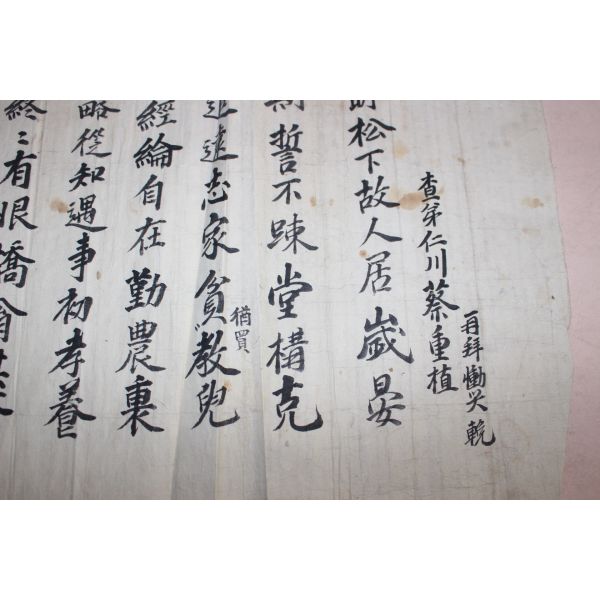 查弟仁川蔡重植
再拜慟哭輓
松下故人居歲晏
誓不踈堂構克
追遠志家貧猶買教兒
經綸自在勤農裏
略從知遇事初孝養
終〻有眼橋翁